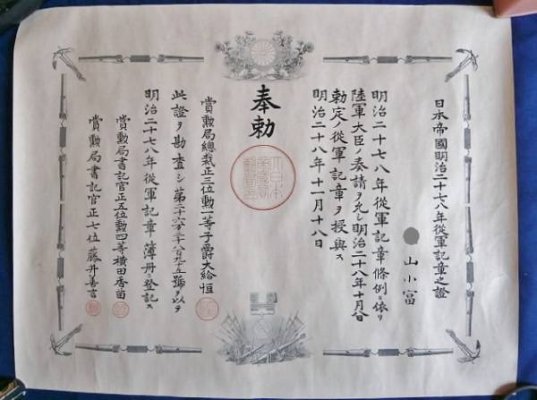 日本帝國明治二十七八年從軍記章之證
山小富
明治二十七八年從軍記章條例ニ依リ
陸軍大臣ノ奏請ヲ允シ明治二十八年十月
勅定ノ從軍記章ヲ授與ス
明治二十八年十一月十八日
奉勅
賞勳局總裁正三位勳一等子爵大給恒
此證ヲ勘査シ第二十六万 號ヲ以テ
明治二十七八年從軍記章簿冊ニ登記ス
賞勳局書記官正五位勳四等横田香苗
賞勳局書記官正七位藤井善言